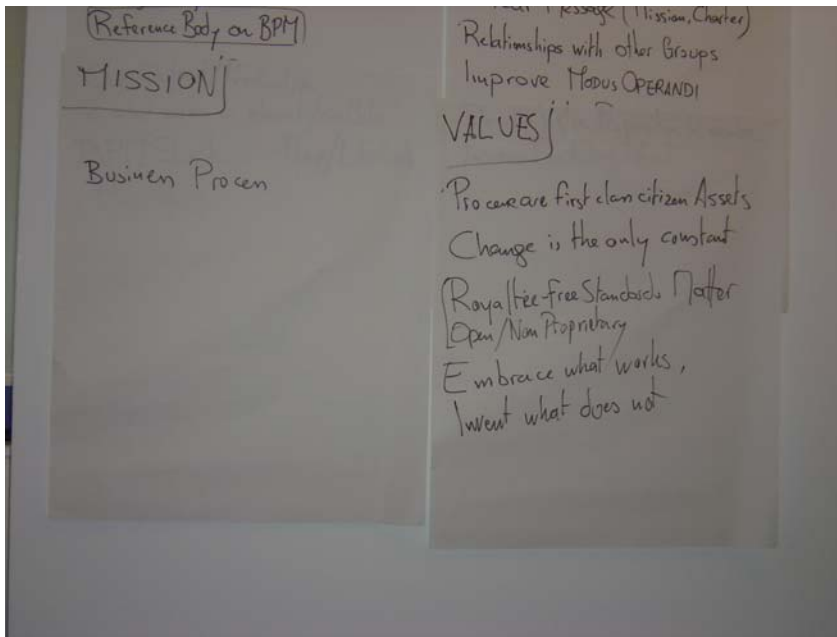 Reference Body on BPM
MISSION
Business Process
Message (Mission, Charter)
Relationships with other Groups
Improve MODUS OPERANDI
VALUES
Process are first class citizen Assets
Change is the only constant
Royaltee-free Standards Matter
Open/Non Proprietary
Embrace what works,
Invent what does not